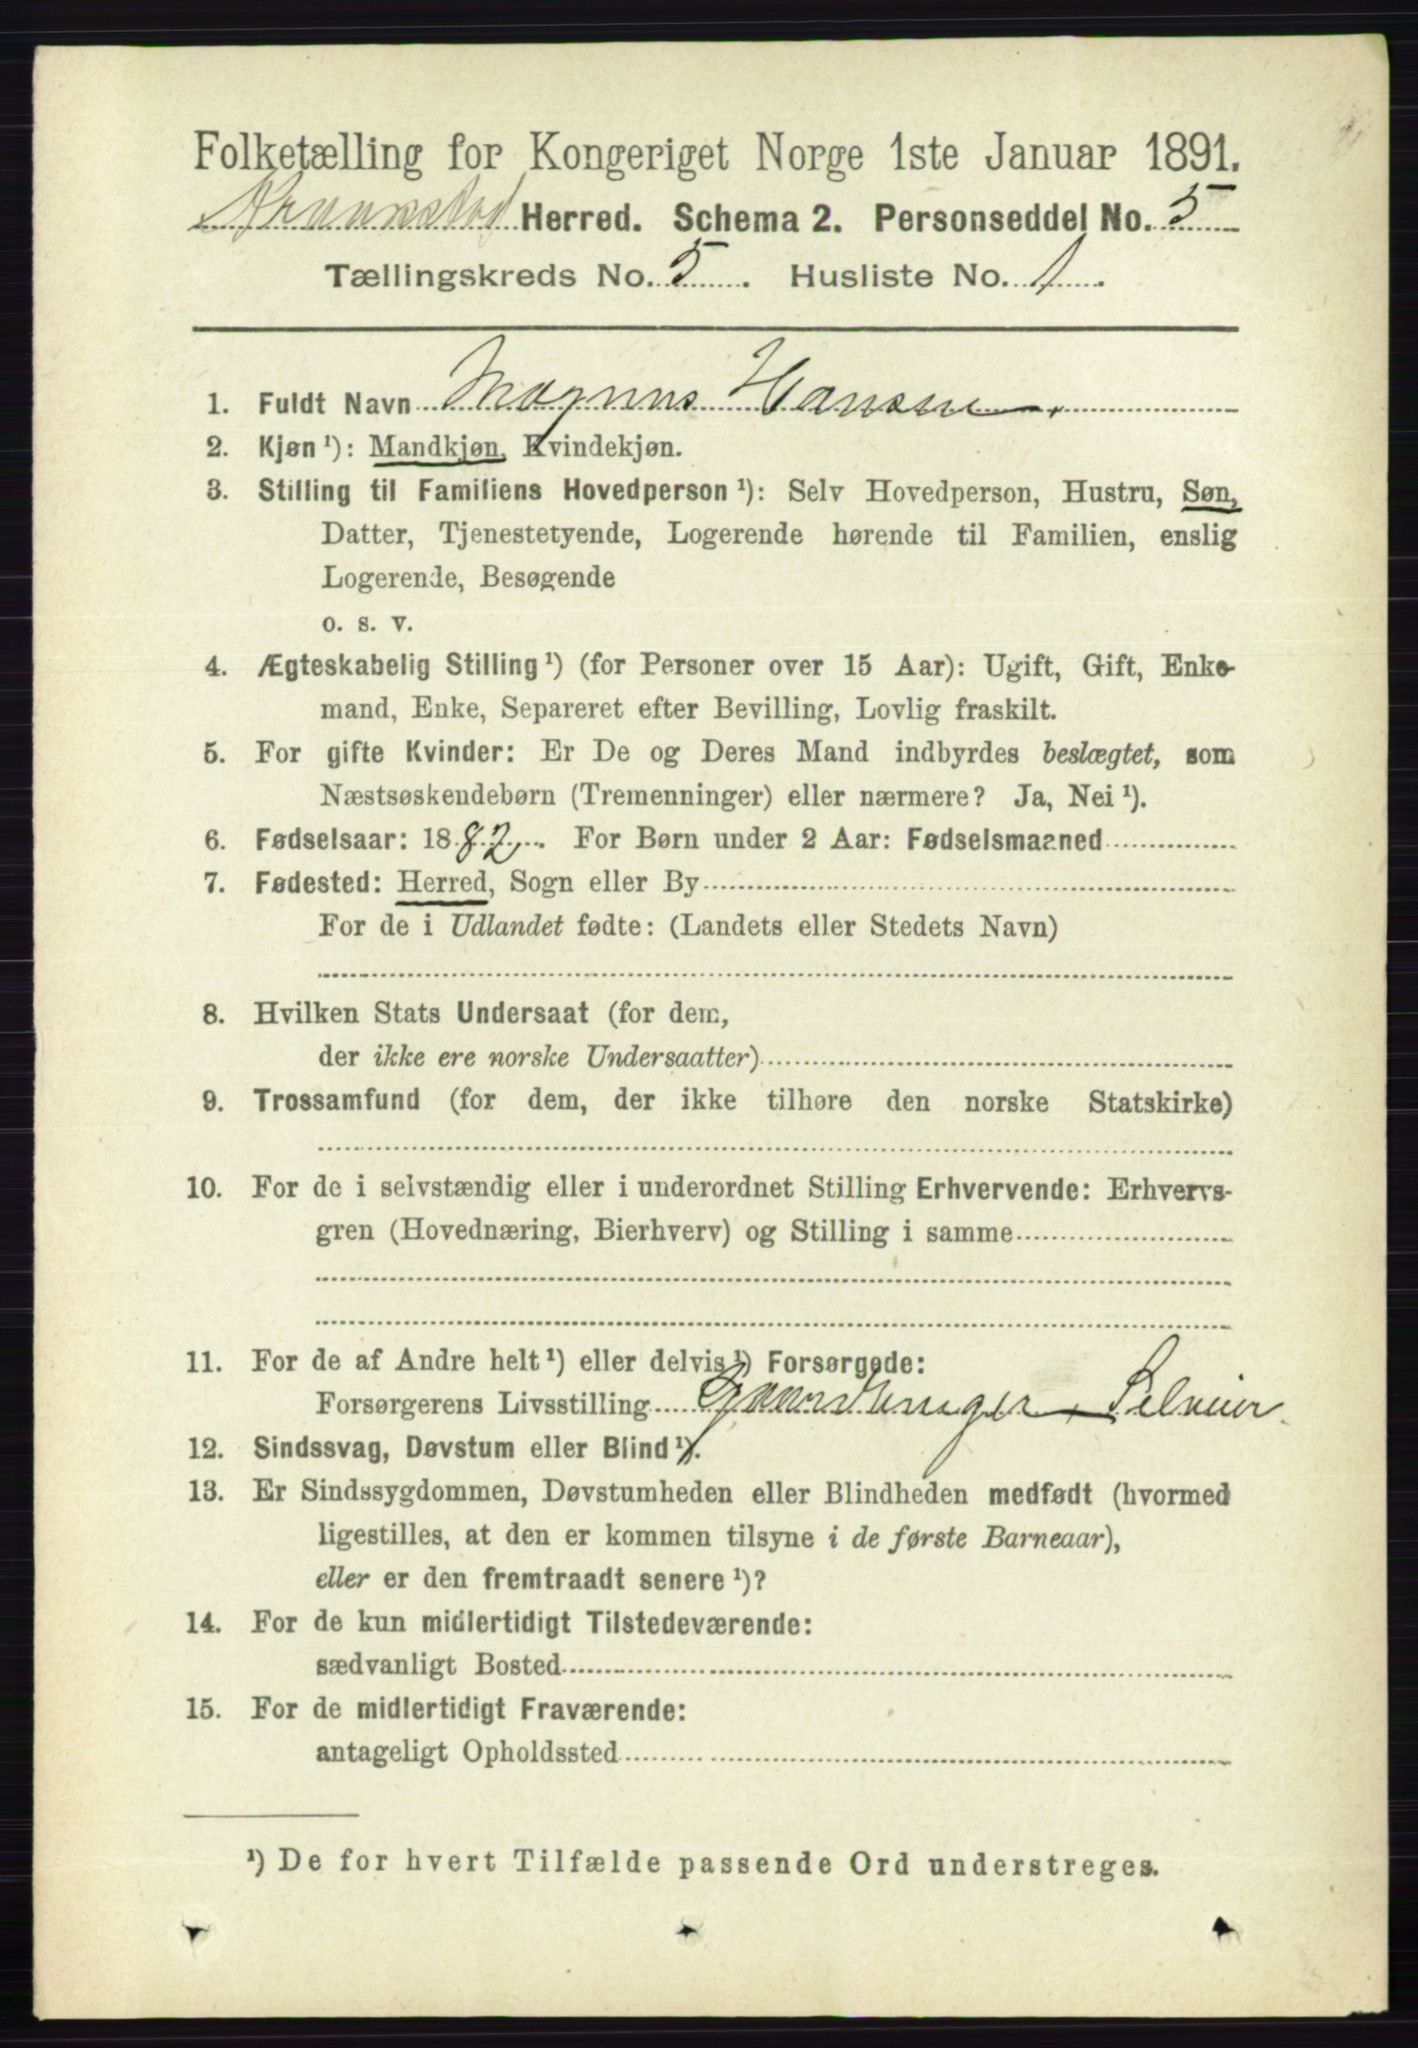 Folketælling for Kongeriget Norge 1ste Januar 1891.
Herred. Schema 2. Personseddel No. 5
Tællingskreds No. 5. Husliste No. 1.
1. Fuldt Navn Magnus Hansen.
2. Kjøn ¹): Mandkjøn, Kvindekjøn.
3. Stilling til Familiens Hovedperson ¹): Selv Hovedperson, Hustru, Søn,
Datter, Tjenestetyende, Logerende hørende til Familien, enslig
Logerende, Besøgende
o. s. v.
4. Ægteskabelig Stilling ¹) (for Personer over 15 Aar): Ugift, Gift, Enke-
mand, Enke, Separeret efter Bevilling, Lovlig fraskilt.
5. For gifte Kvinder: Er De og Deres Mand indbyrdes beslægtet, som
Næstsøskendebørn (Tremenninger) eller nærmere? Ja, Nei ¹).
6. Fødselsaar: 1882. For Børn under 2 Aar: Fødselsmaaned
7. Fødested: Herred, Sogn eller By
For de i Udlandet fødte: (Landets eller Stedets Navn)
8. Hvilken Stats Undersaat (for dem,
der ikke ere norske Undersaatter)
9. Trossamfund (for dem, der ikke tilhøre den norske Statskirke)
10. For de i selvstændig eller i underordnet Stilling Erhvervende: Erhvervs-
gren (Hovednæring, Bierhverv) og Stilling i samme
11. For de af Andre helt ¹) eller delvis ¹) Forsørgede:
Forsørgerens Livsstilling Gaardbruger, Seleier
12. Sindssvag, Døvstum eller Blind ¹).
13. Er Sindssygdommen, Døvstumheden eller Blindheden medfødt (hvormed
ligestilles, at den er kommen tilsyne i de første Barneaar),
eller er den fremtraadt senere ¹)?
14. For de kun midlertidigt Tilstedeværende:
sædvanligt Bosted
15. For de midlertidigt Fraværende:
antageligt Opholdssted
¹) De for hvert Tilfælde passende Ord understreges.